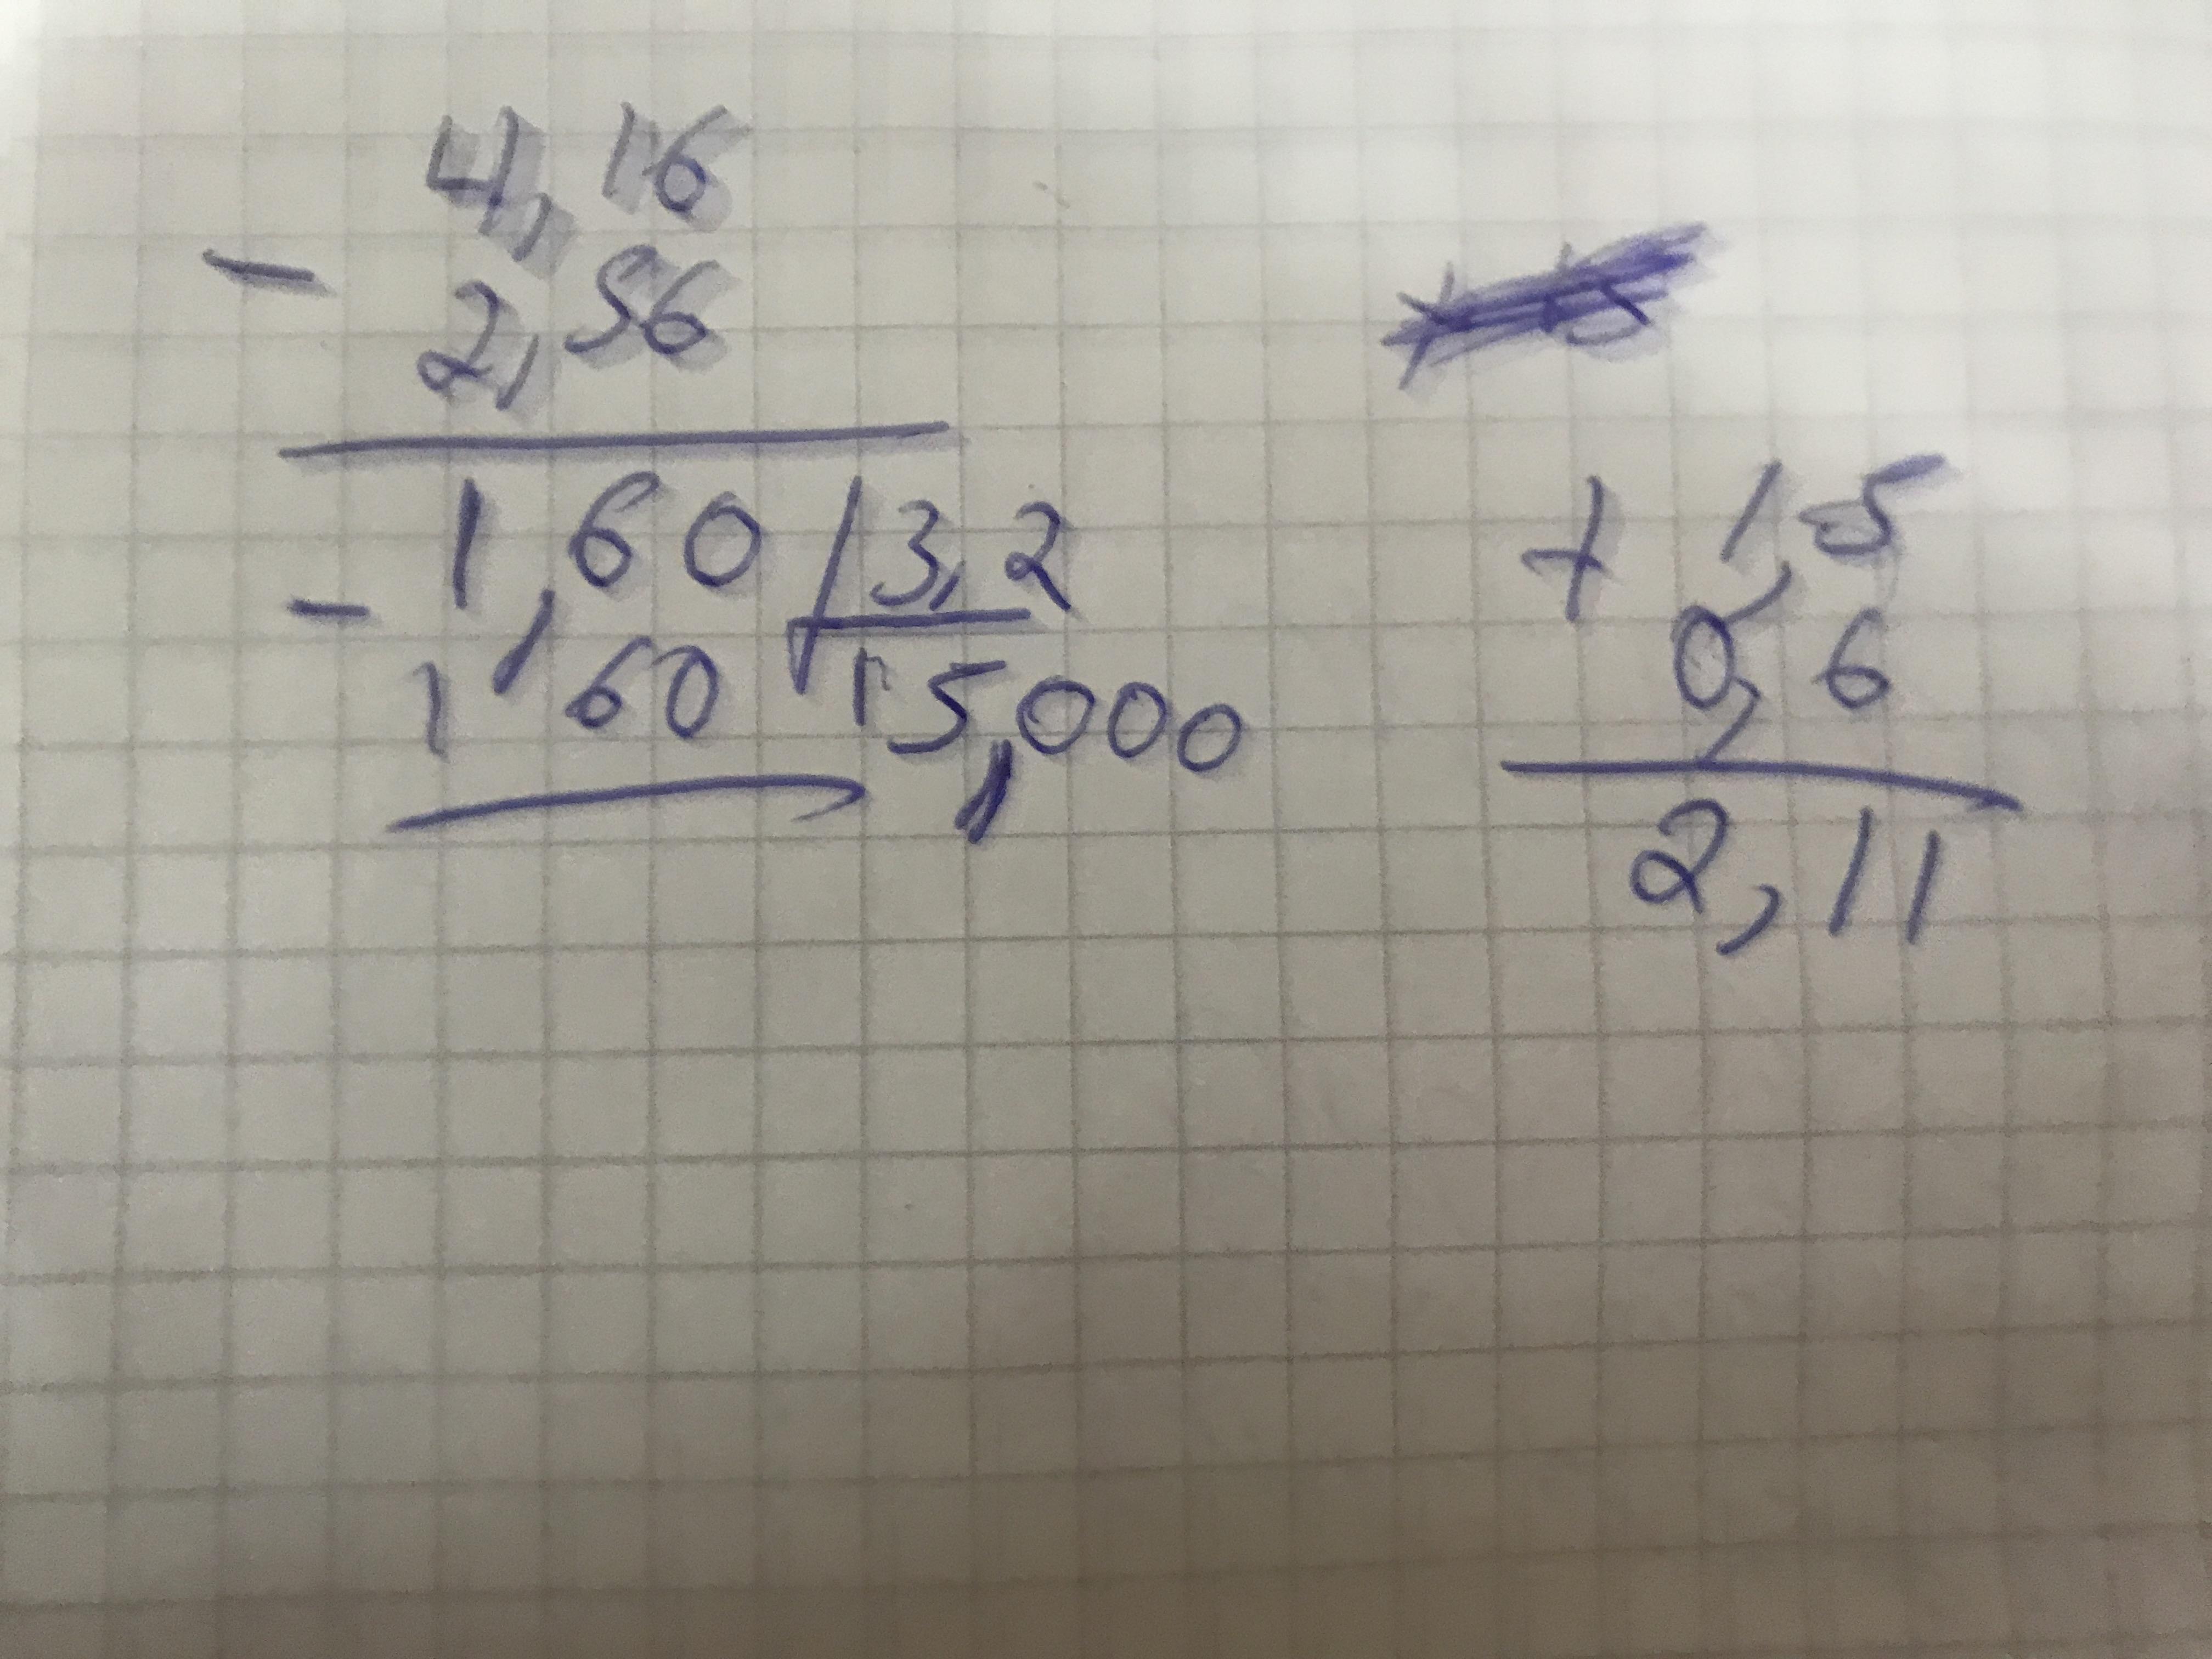 4,16
- 2,56
1,60 | 3,2
- 1,160 | 15,000
+ 1,5
0,6
2,11